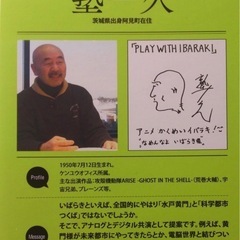 塾 一久
茨城県出身阿見町在住
「PLAY WITH IBARAKI」
塾一久
アニメ かくめいイバラキ!
"なめんなよ いばらき県"
Profile
1950年7月12日生まれ。
ケンユウオフィス所属。
主な出演作品：攻殻機動隊ARISE -GHOST IN THE SHELL-（荒巻大輔）、宇
宙兄弟、プレーンズ等。
Message
いばらきといえば、全国的にやはり「水戸黄門」と「科学都市
つくば」ではないでしょうか。
そこで、アナログとデジタル共演として提案です。例えば、黄
門様が未来都市にやってきたらとか、電脳世界と結びつい